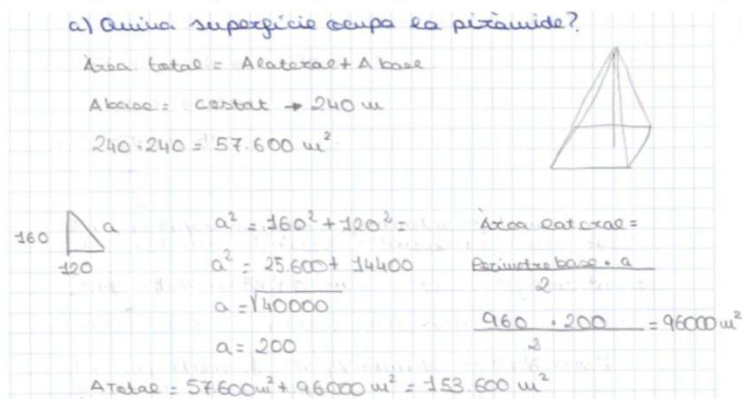 a) Quina superfície ocupa la piràmide?
Àrea total = A lateral + A base
A base = costat → 240 m
240 · 240 = 57.600 m²
160
a
120
a² = 160² + 120² =
a² = 25.600 + 14400
a = √40000
a = 200
Àrea lateral =
Perimetre base · a
2
960 · 200 = 96000 m²
2
A Total = 57600 m² + 96000 m² = 153.600 m²